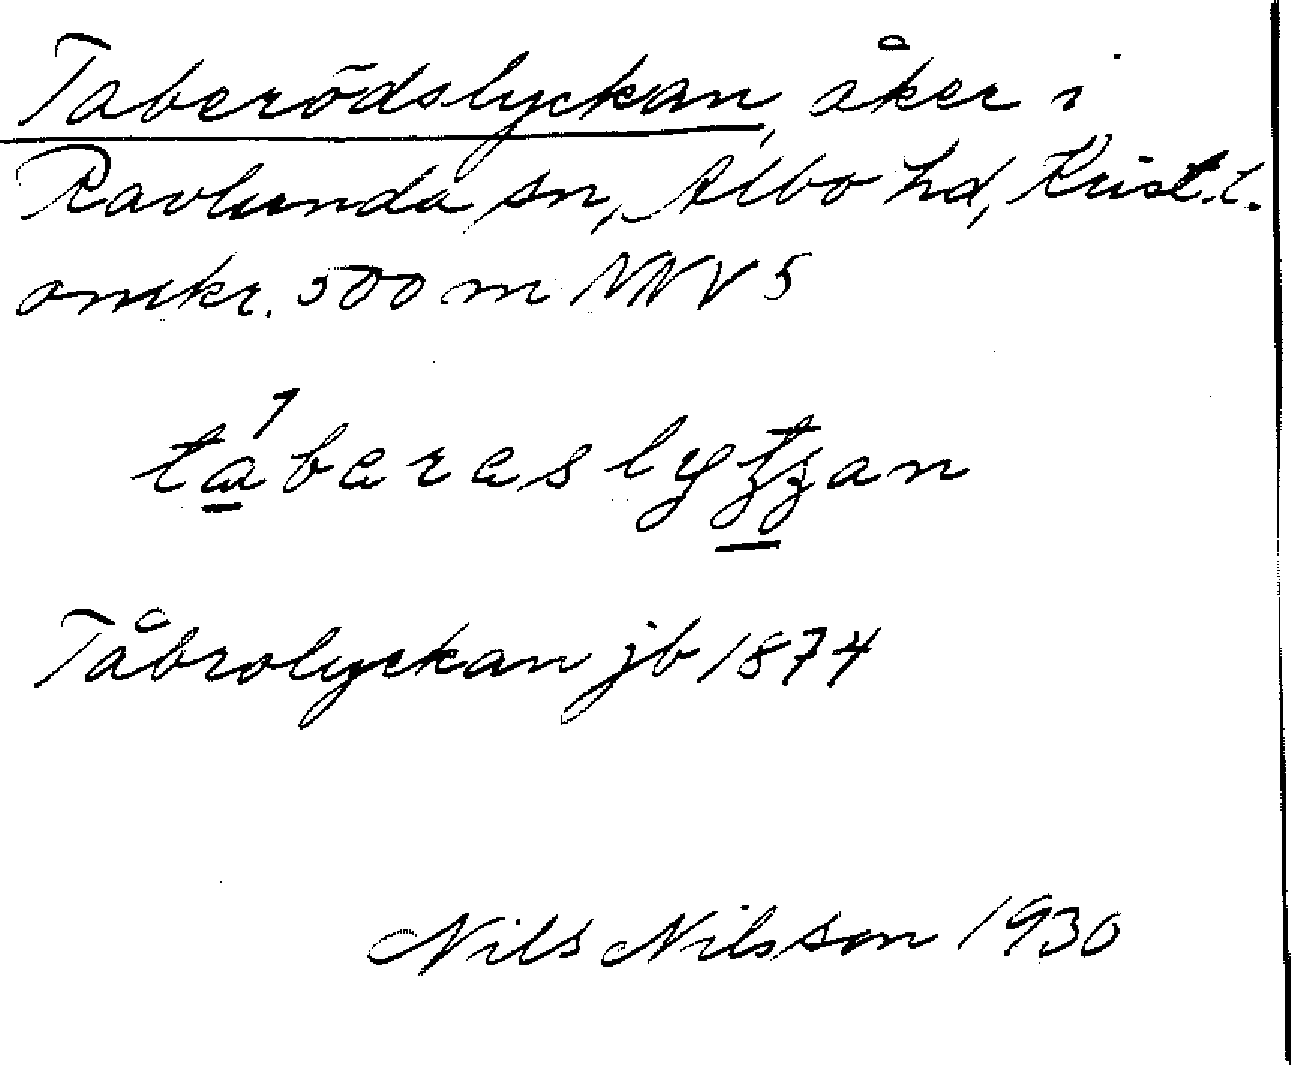 Taberödslyckan, åker i
Ravlunda sn, Albo hd, Krist. l.
omkr. 500 m NNV 5
tabereslytzan
Tåbrolyckan jb 1874
Nils Nilsson 1930